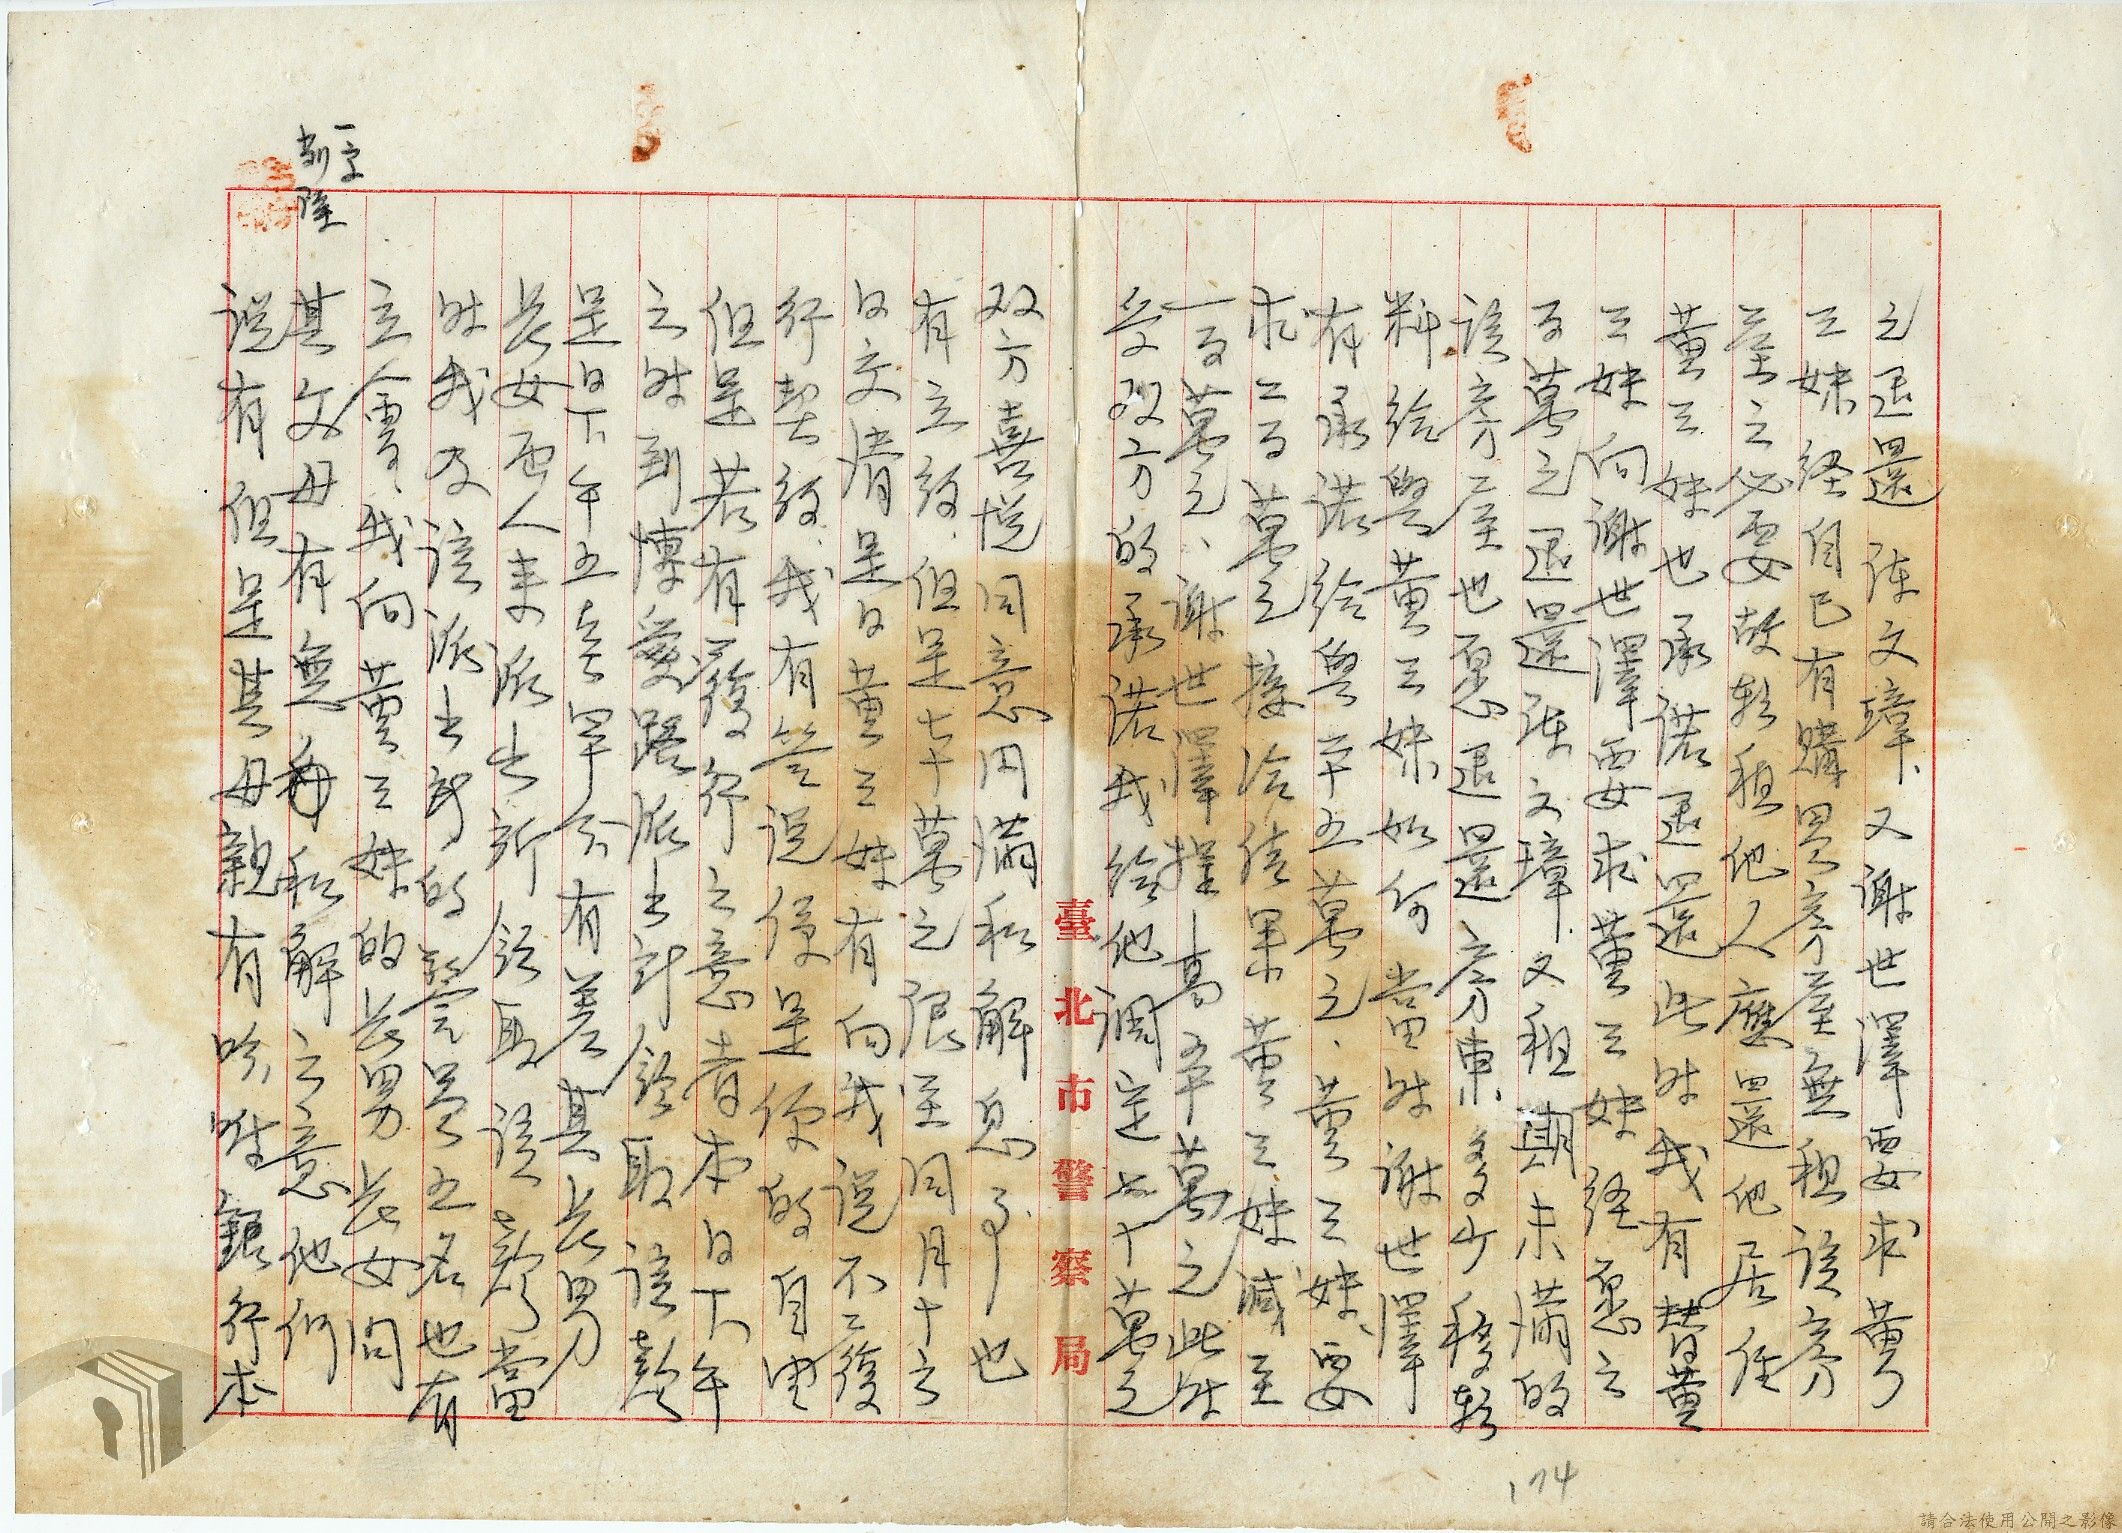 之退還陳文璋、又謝世澤要求黃
三妹経自己有購買房屋無租該房
屋之必要故轉租他人應還他居住
黃三妹也承諾退還此時我有替黃
三妹向謝世澤要求黃三妹経愿之
百萬之退還陳文璋又租期未滿的
該房屋也愿退還房東多少移転
料給與黃三妹如何當時謝世澤
有承諾給與辛五萬元、黃三妹要
求二百萬元接洽結果黃三妹減至
一百萬元、謝世澤提高辛萬元此時
受双方的承諾我給他調定七十萬元
双方喜悦同意円滿和解息事也
有立約、但是七十萬元限至同月十六
日交清是日黃三妹有向我說不履
行契約、我有答説你是你的自由
但是若有履行之意者本日下午
六時到博愛路派出所領取該款
是日下午五点四十分有差其長男
長女両人来派出所領取該款當
時我及該派出所的警員五名也有
立會、我向黃三妹的長男長女問
其父母有無和解之意他們
說有但是其母親有吩咐銀行本
一字
削除
臺北市警察局
174
請合法使用公開之影像